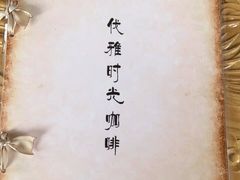 优雅时光咖啡